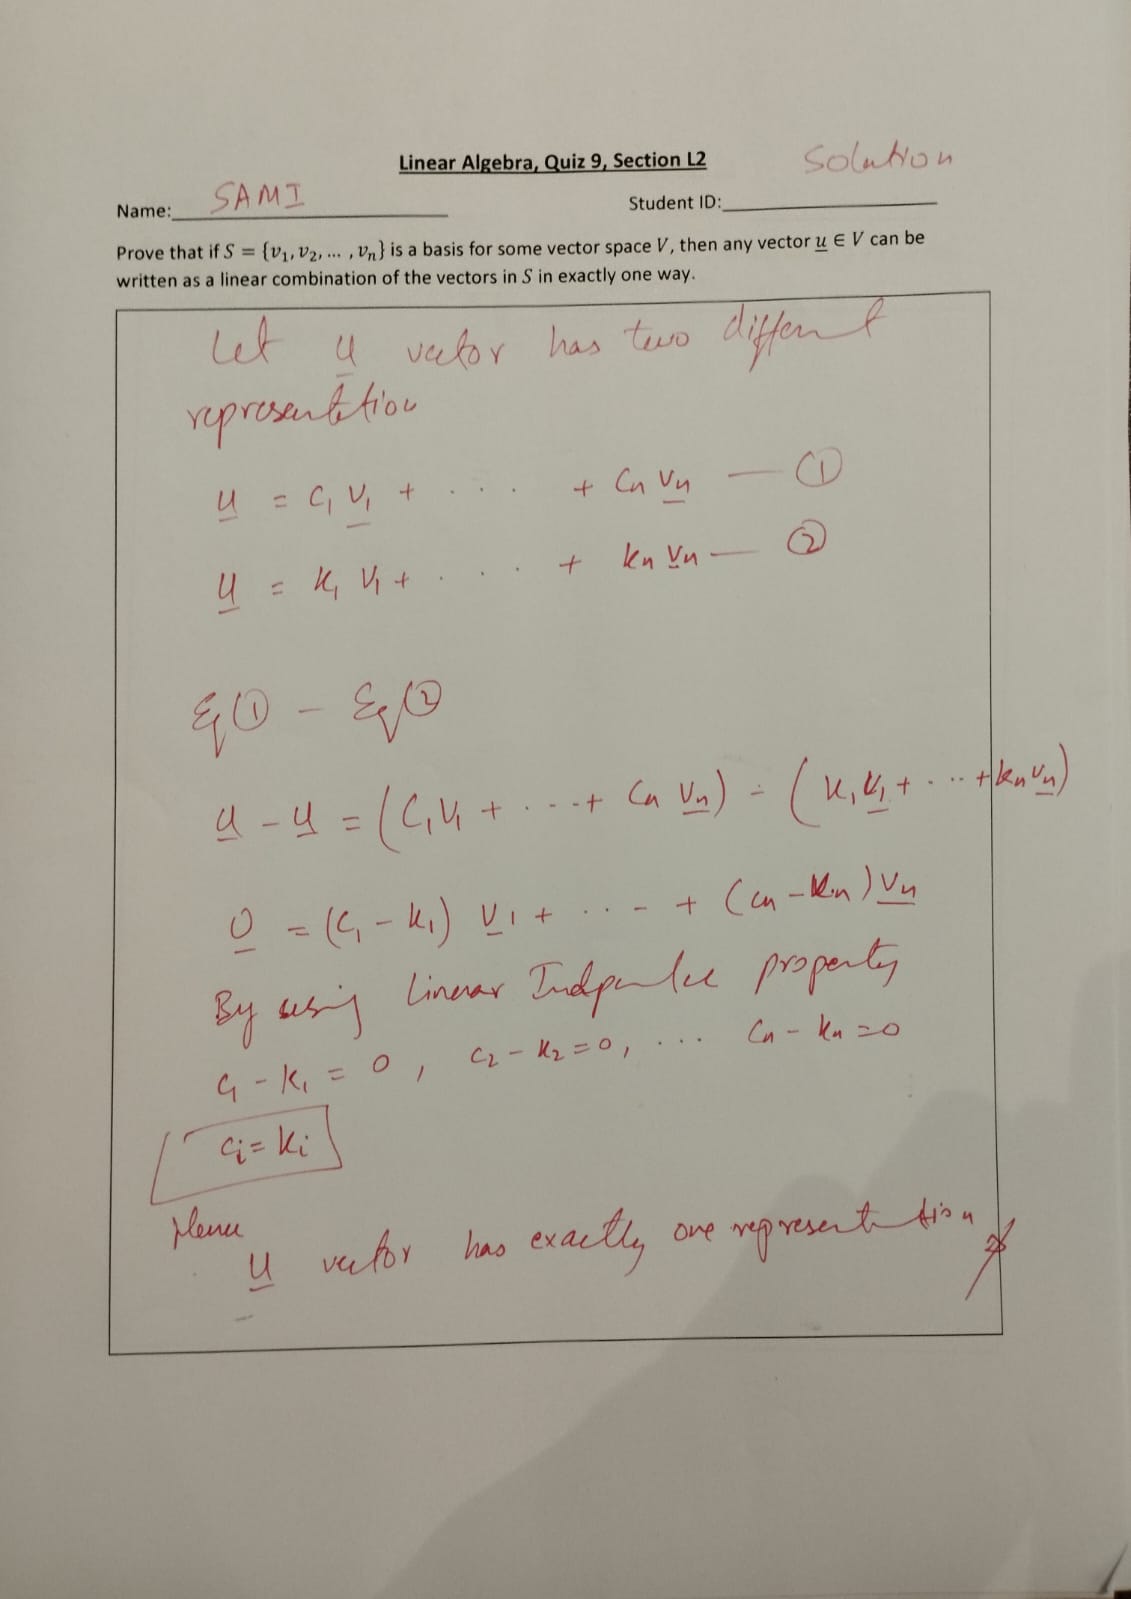 Linear Algebra, Quiz 9, Section L2
Solution
Name: SAMI
Student ID:
Prove that if S = {v₁, v₂, ... , vₙ} is a basis for some vector space V, then any vector u ∈ V can be
written as a linear combination of the vectors in S in exactly one way.
Let u vector has two different
representation
u = c₁ v₁ + . . . . + cₙ vₙ — ①
u = k₁ v₁ + . . . . + kₙ vₙ — ②
Eq ① – Eq ②
u – u = (c₁v₁ + . - - - + cₙ vₙ) – (k₁v₁ + . . .. + kₙvₙ)
0 = (c₁ – k₁) v₁ + . . . – + (cₙ – kₙ) vₙ
By using Linear Indpendce property
c₁ – k₁ = 0 , c₂ – k₂ = 0 , . . . cₙ – kₙ = 0
cᵢ = kᵢ
Hence
u vector has exactly one representation